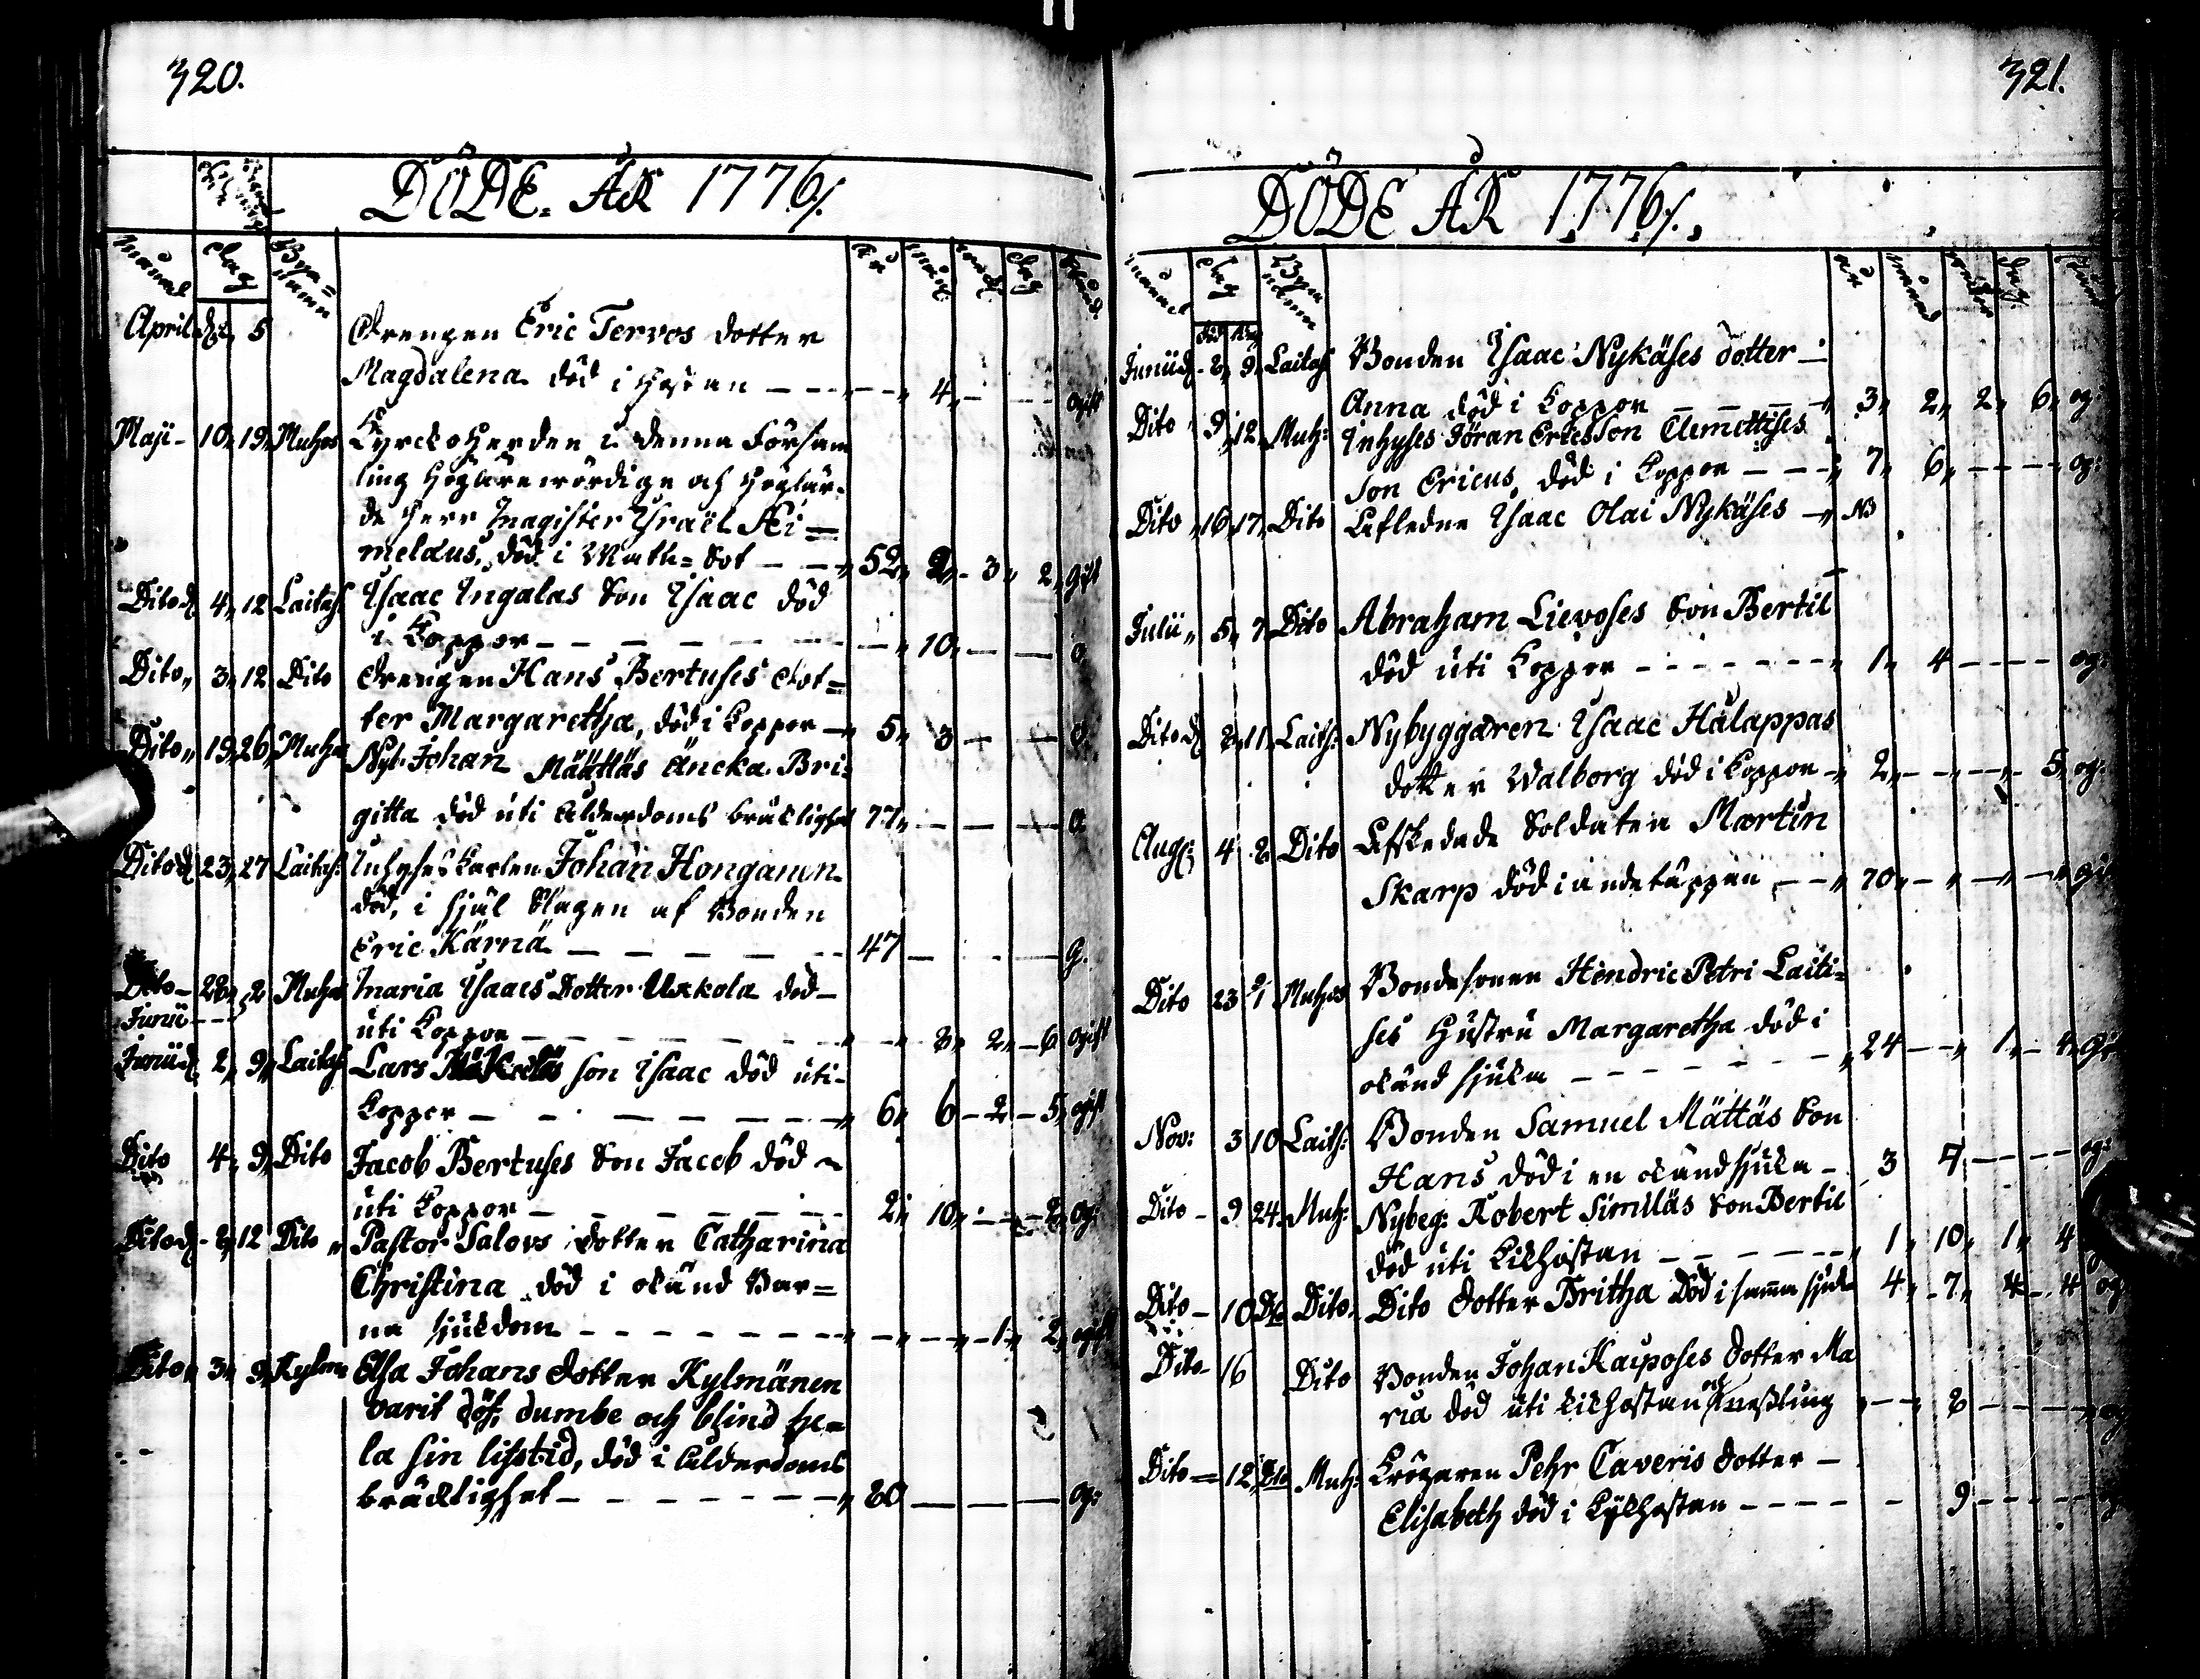 320.
DÖDE. ÅR 1776/.
Månad Dag Bya= namn År Dag
April 5 Drengen Eric Tervos dotter
Magdalena död i hostan – – – 4 – ogift
Maji – 10 19 Muhos Kyrckoherden i denna Försam
ling Höglärewördige och Höglär-
de Herr Magister Israël
melæus, död i – Sot – – 52 2 3 2 gift
Dito 4 12 Laitas: Isaac Ingalas Son Isaac död
i Koppor – – – – 10 – – o
Dito 3 12 Dito Drengen Hans Bertuses dot=
ter Margaretha, död i Koppor – 5 3 – –
Dito 19 26 Muhos Nyb. Johan Määttäs Äncka Bri=
gitta död uti ålderdoms bräcklighet 77 – – –
Dito 23 27 Laitas: Inhyses Karlen Johan Honganen
död, i hjäl Slagen af Bonden
Eric Kärnä – – – – 47 – – – g.
Dito – 28 2 Muhos Maria Isaacs Dotter Uxkola död –
Junii – – uti Koppor – – – – 3 2 – 6 ogift
Junii 2 9 Laitas: Lars son Isaac död uti
Koppor – – – – 6 6 – 2 – 5 ogift
Dito 4 9 Dito Jacob Bertuses Son Jacob död
uti Koppor – – – – 2 10 – 2 og:
Dito 2 12 Dito Pastor Salovs dotter Catharina
Christina död i okänd Bar=
na sjukdom – – – – – – 1 2 ogift
Dito 3 9 Kylm Elsa Johans dotter Kylmänen
varit döf, dumbe och blind he=
la sin lifstid, död i ålderdoms
bräcklighet – – – – 80 – – – og:
321.
DÖDE ÅR 1776/.
Månad Dag Bya namn År Månad Dag
Junii 2 9 Laitas: Bonden Isaac Nykäses dotter –
Anna död i Koppor – – – 3 2 2 6 og:
Dito 9 12 Muh: Inhyses Jöran Ericsson Clemettises
Son Ericus, död i Koppor – – 7 6 – – – og:
Dito 16 17 Dito Aflednе Isaac Olai Nykäses – NB
Julii 5 7 Dito Abraham Lievoses Son Bertil
död uti Koppor – – – – 1 4 – – – og:
Dito 2 11 Laits: Nybyggaren Isaac Halappas
dotter Walborg död i Koppor – 2 – – 5 og:
Aug: 4 2 Dito Afskedade Soldaten Martin
Skarp död i andetäppan – – 70 – – – gi
Dito 23 1 Muhos Bondesonen Hendric Petri Laiti=
ses Hustru Margaretha död i
okänd sjuka – – – – 24 – – 1 – 4 gi
Nov: 3 10 Laits: Bonden Samuel Mättäs Son
Hans död i en okänd sjuka – 3 7 – – – og:
Dito – 9 24 Muh: Nybeg: Robert Similäs Son Bertil
död uti Kikhostan – – – – 1 10 1 4
Dito – 10 Dito Dito. Dito dotter Britha död i samma sjuk 4 7 4 4 og
Dito – 16 Dito Bonden Johan Kauposes dotter Ma
ria död uti kikhostan och – – 8 – – – og
Dito = 12 Dito Muh: Krögaren Pehr Taveris dotter –
Elisabeth död i Kikhostan – – – – 9 – – –